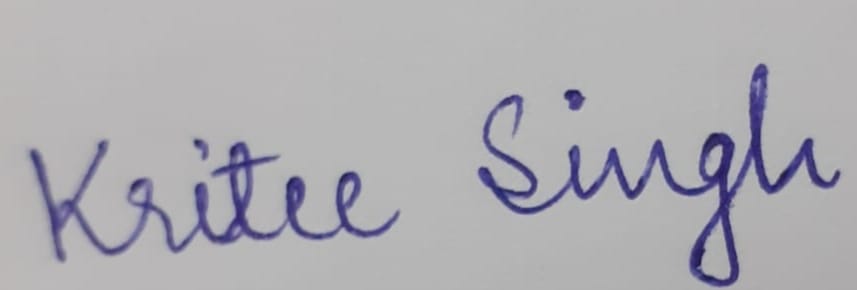 Kritee Singh